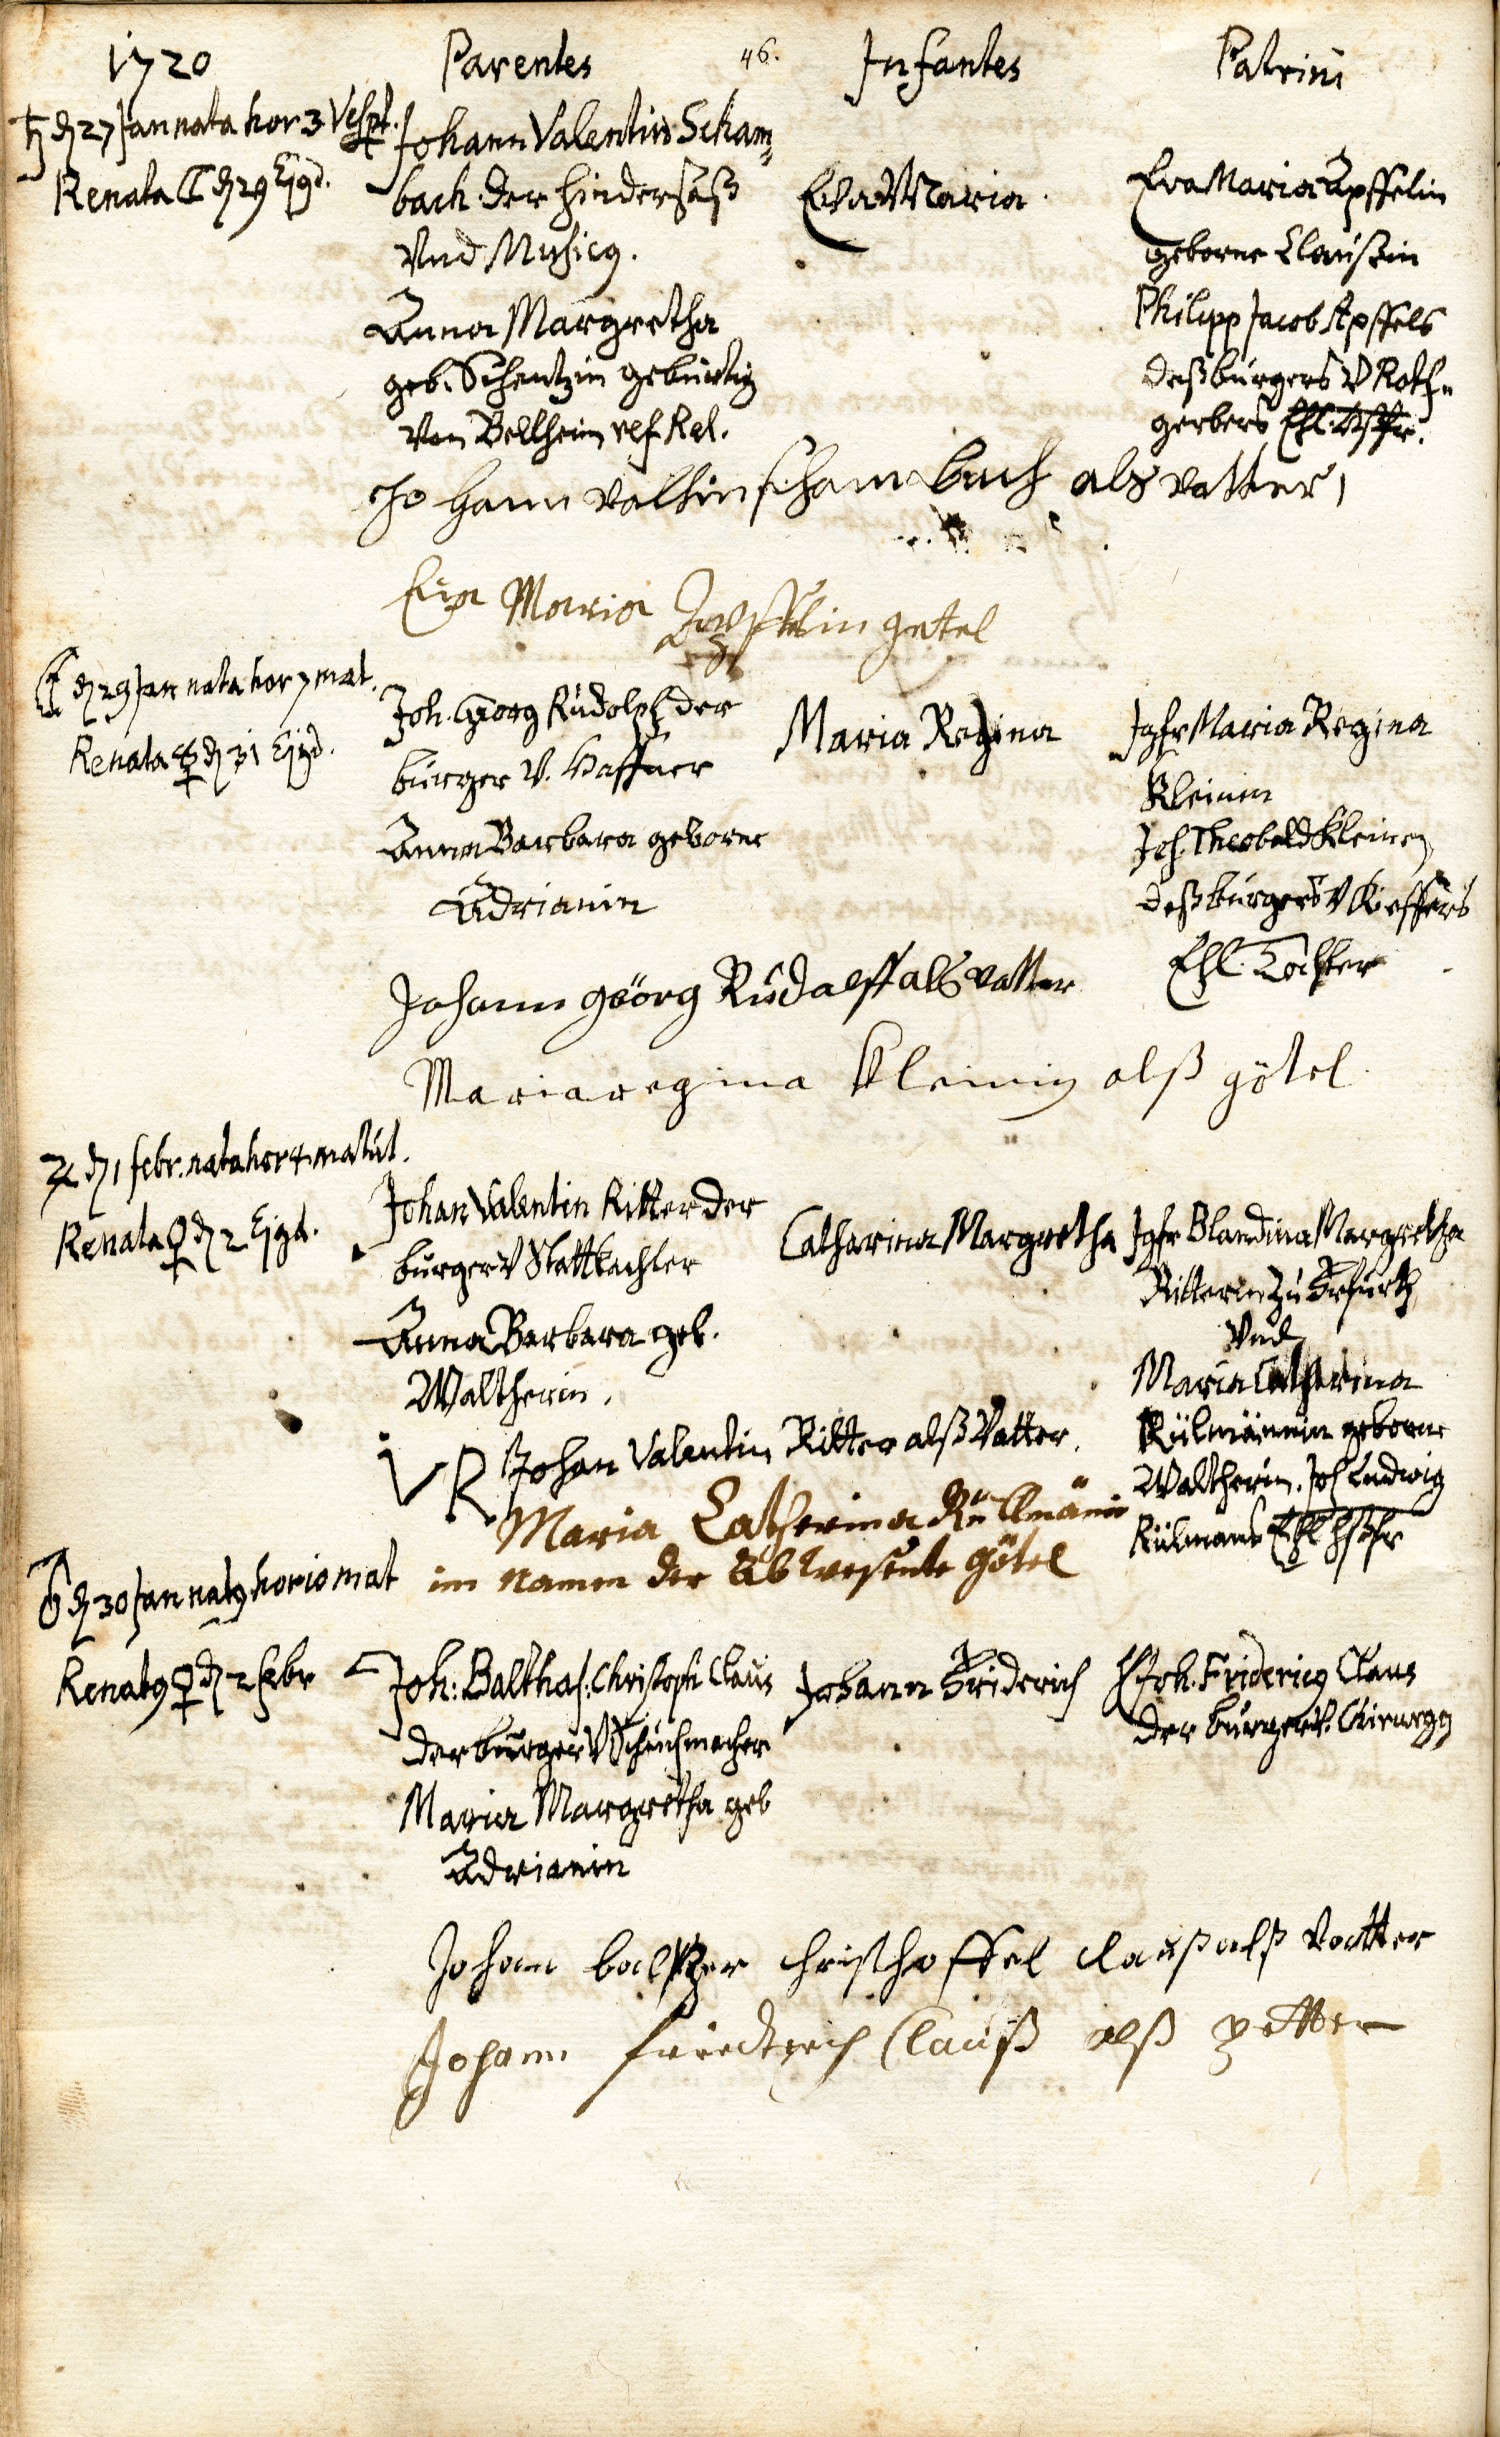 1720 Parentes 46. Infantes Patrini
♄ d 27 Jan nata hor 3 Vesp.
Renata ☾ d 29 Ejqd.
Johann Valentin Scham„
bach der Hindersaß
Vnd Musicq.
Anna Margretha
geb. Schentzin gebürtig
Von Bellheim ref. Rel.
Eva Maria
Eva Maria Apffelin
geborne Claußin
Philipp Jacob Apffels
deß burgers V Roth„
gerbers Ehl. Hßfr.
Johann valthin schambach als vatter
Eva Maria Apffelin getel
☾ d 29 Jan nata hor 7 mat.
Renata ☿ d 31 Ejqd.
Joh. Georg Rudolph der
burger V. Haffner
Anna Barbara geborne
Adrianin
Maria Regina
Jgfr Maria Regina
Kleinin
Joh. Theobald Kleinen
deß burgers V Kieffers
Ehl. Tochter
Johann Göörg Rudalff als vatter
Mariaregina Kleinin alß götel
♃ d 1 febr. nata hor 4. matut.
Renata ♀ d 2 Ejqd.
Johan Valentin Ritter der
burger V Stattkachler
Anna Barbara geb.
Waltherin.
Catharina Margretha
Jgfr Blandina Margretha
Ritterin zu Erfurth
Vnd
Maria Catharina
Külmännin geborne
Waltherin. Joh Ludwig
Külmans Ehl Hßfr
VR Johan Valentin Ritter alß Vatter.
Maria Catherina Küllmänin
im namen der Abwesente götel
♂ d 30 Jan natq hor 10 mat
Renatq ♀ d 2 febr
Joh: Balthas: Christoph Claus
der burger V Schuchmacher
Maria Margretha geb
Adrianin
Johann Friderich
H Joh. Fridericq Claus
der burger V. Chirurgq
Johann balßer christhoffel Clauß alß Vatter
Johann friedterich Clauß alß petter